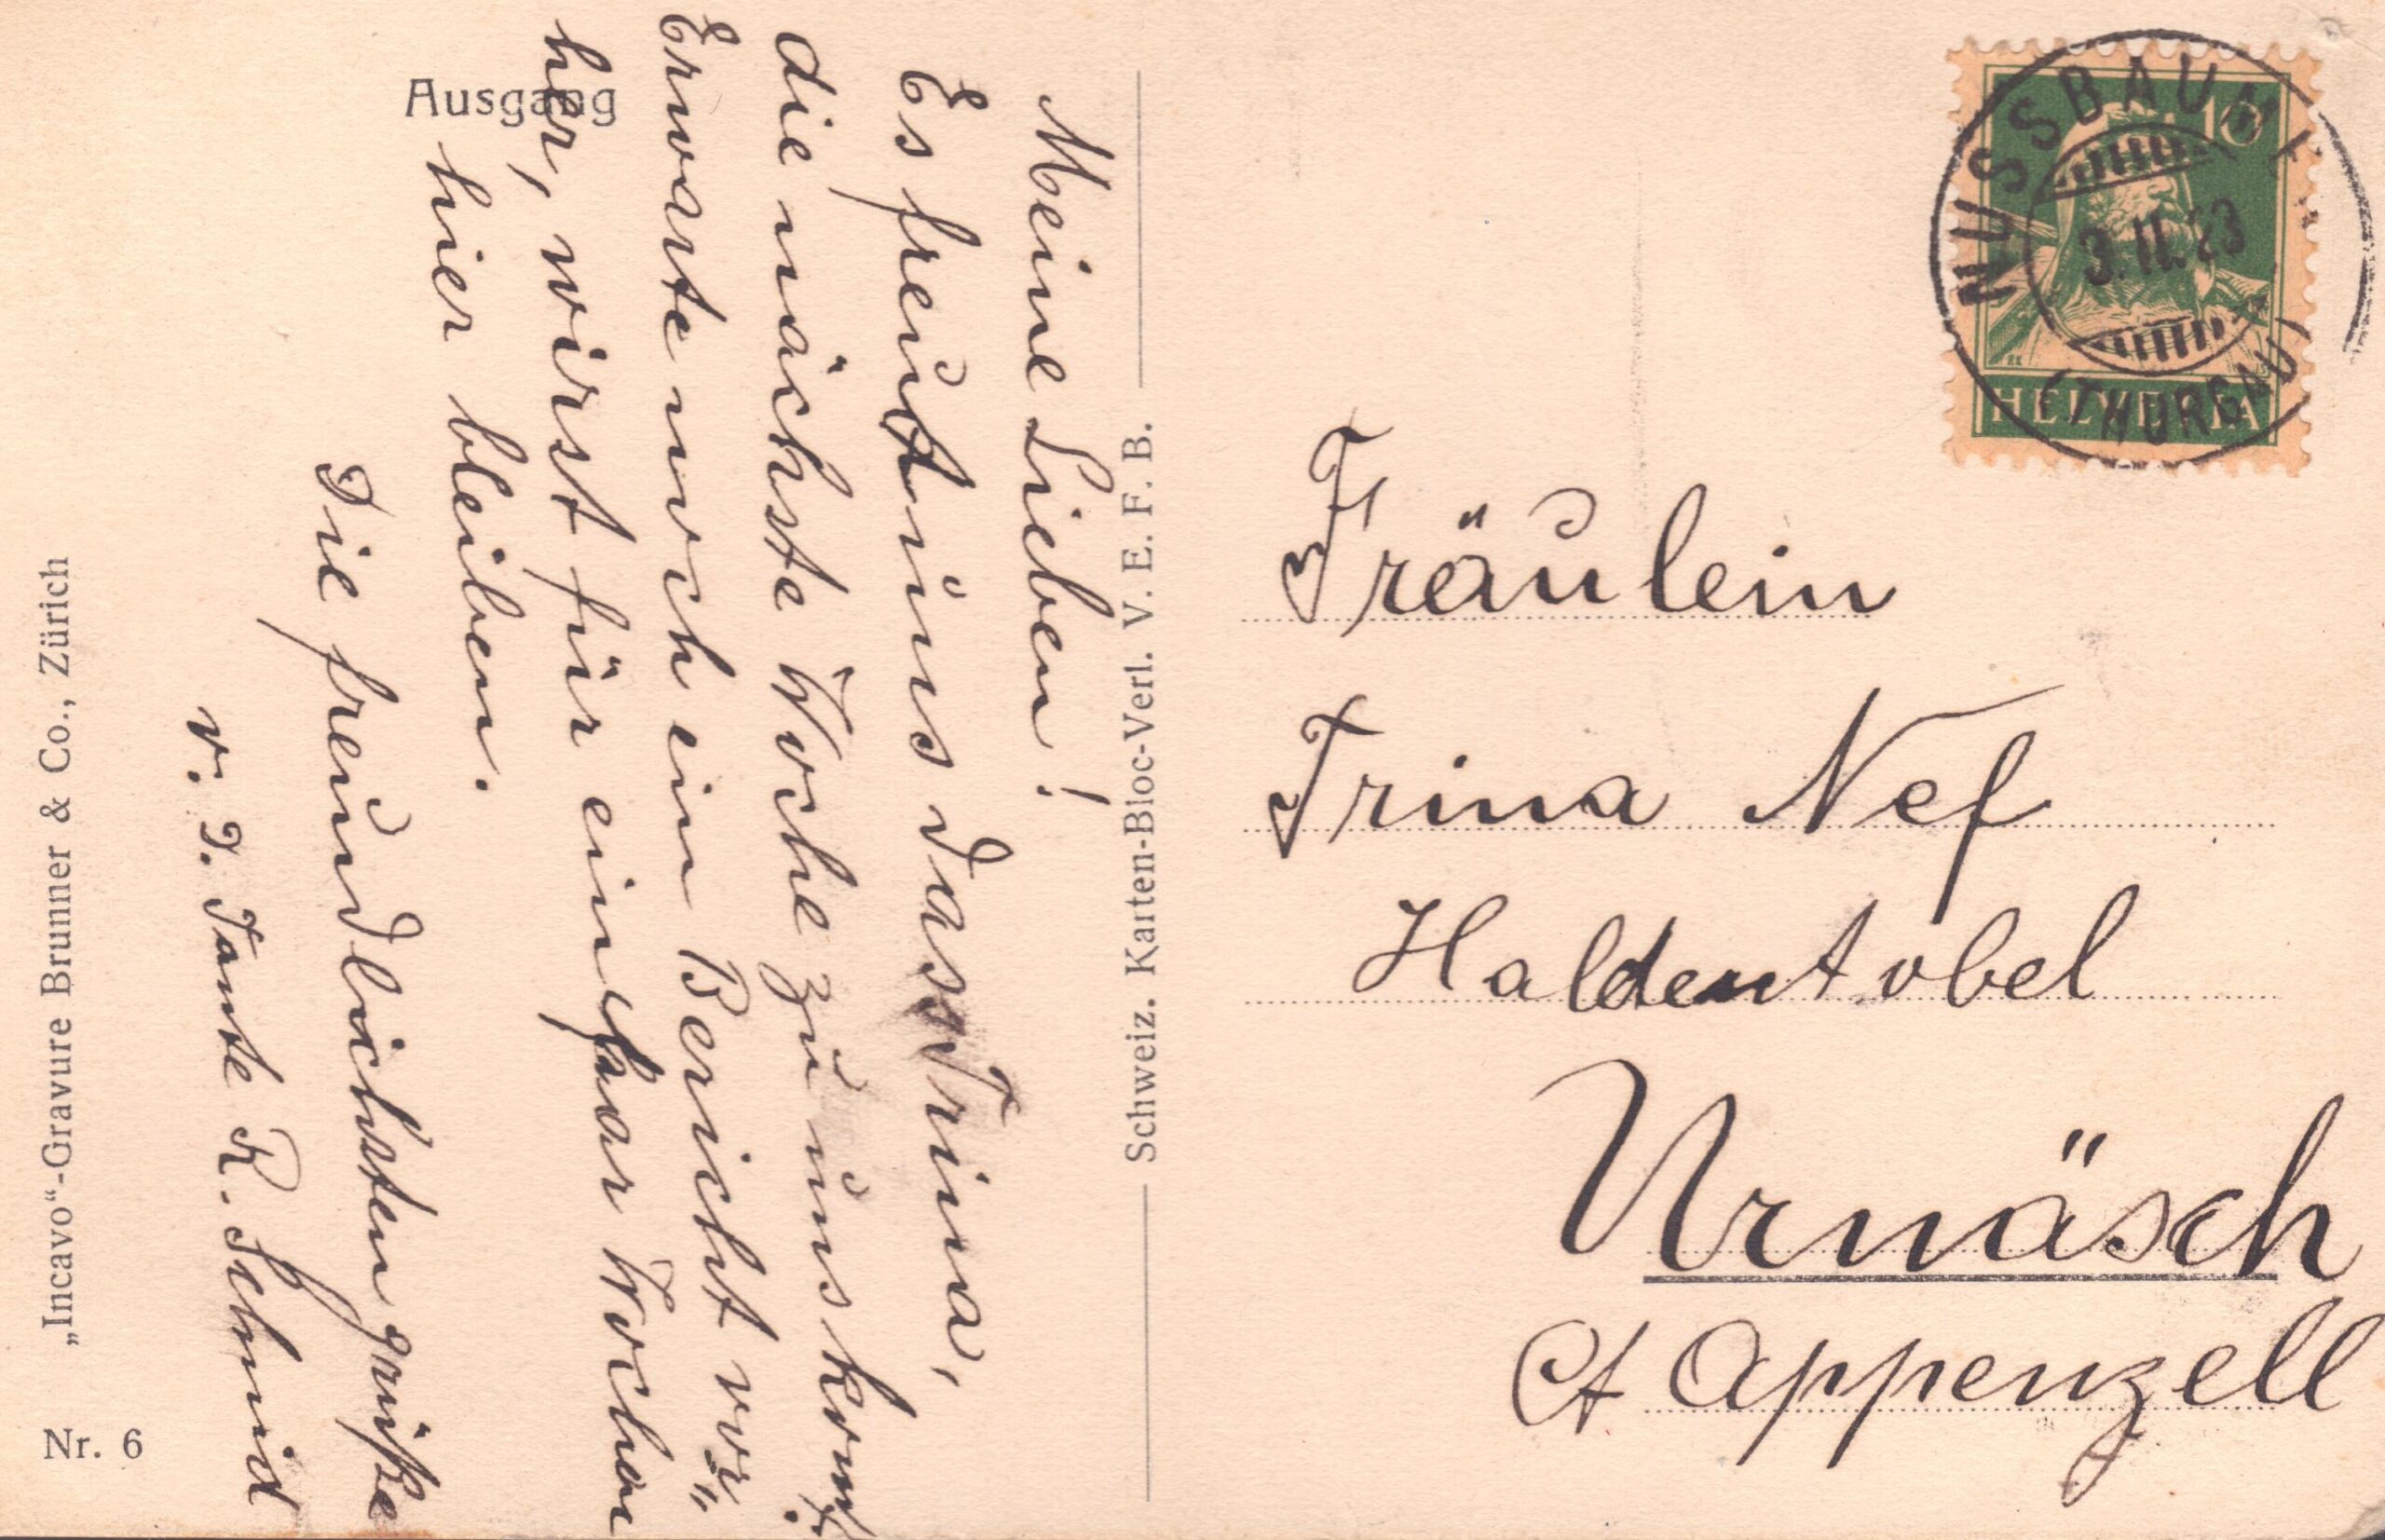 Ausgang
Meine Lieben!
Es freut uns dass Trina,
die nächste Woche zu uns komt.
Erwarte noch ein Bericht vor„
her, wirst für ein paar Wochen
hier bleiben.
Die freundlichsten grüße
v. T. Tante R. Schmid
„Incavo“-Gravure Brunner & Co., Zürich
Nr. 6
Schweiz. Karten-Bloc-Verl. V. E. F. B.
NUSSBAUM
3.II.23
(THURGAU)
10
HELVETIA
Fräulein
Trina Nef
Haldentobel
Urnäsch
Ct Appenzell